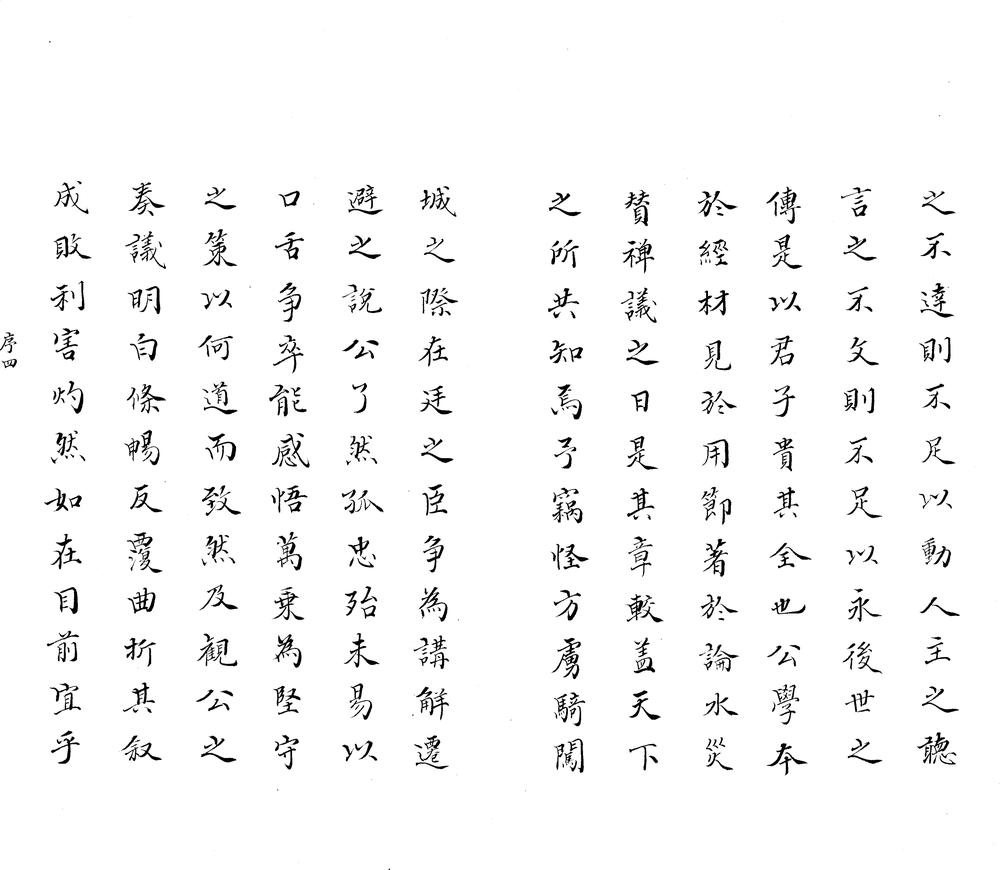 之不達則不足以動人主之聽
言之不文則不足以永後世之
傳是以君子貴其全也公學本
於經材見於用節著於論水災
賛禅議之日是其章較盖天下
之所共知焉予竊怪方虜騎闖
城之際在廷之臣争為講解遷
避之說公了然孤忠殆未易以
口舌争卒能感悟萬乗為堅守
之策以何道而致然及觀公之
奏議明白條暢反覆曲折其叙
成敗利害灼然如在目前宜乎
序四